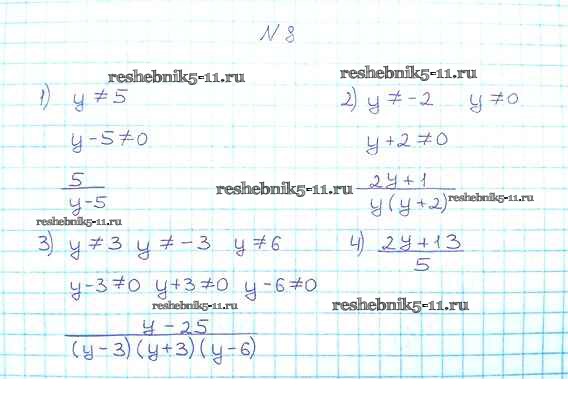 N 8
reshebnik5-11.ru reshebnik5-11.ru
1) y ≠ 5 2) y ≠ -2 y ≠ 0
y - 5 ≠ 0 y + 2 ≠ 0
5 / (y - 5) reshebnik5-11.ru (2y + 1) / (y (y + 2)) reshebnik5-11.ru
reshebnik5-11.ru
3) y ≠ 3 y ≠ -3 y ≠ 6 4) (2y + 13) / 5
y - 3 ≠ 0 y + 3 ≠ 0 y - 6 ≠ 0
reshebnik5-11.ru reshebnik5-11.ru
y - 25
(y - 3) (y + 3) (y - 6)